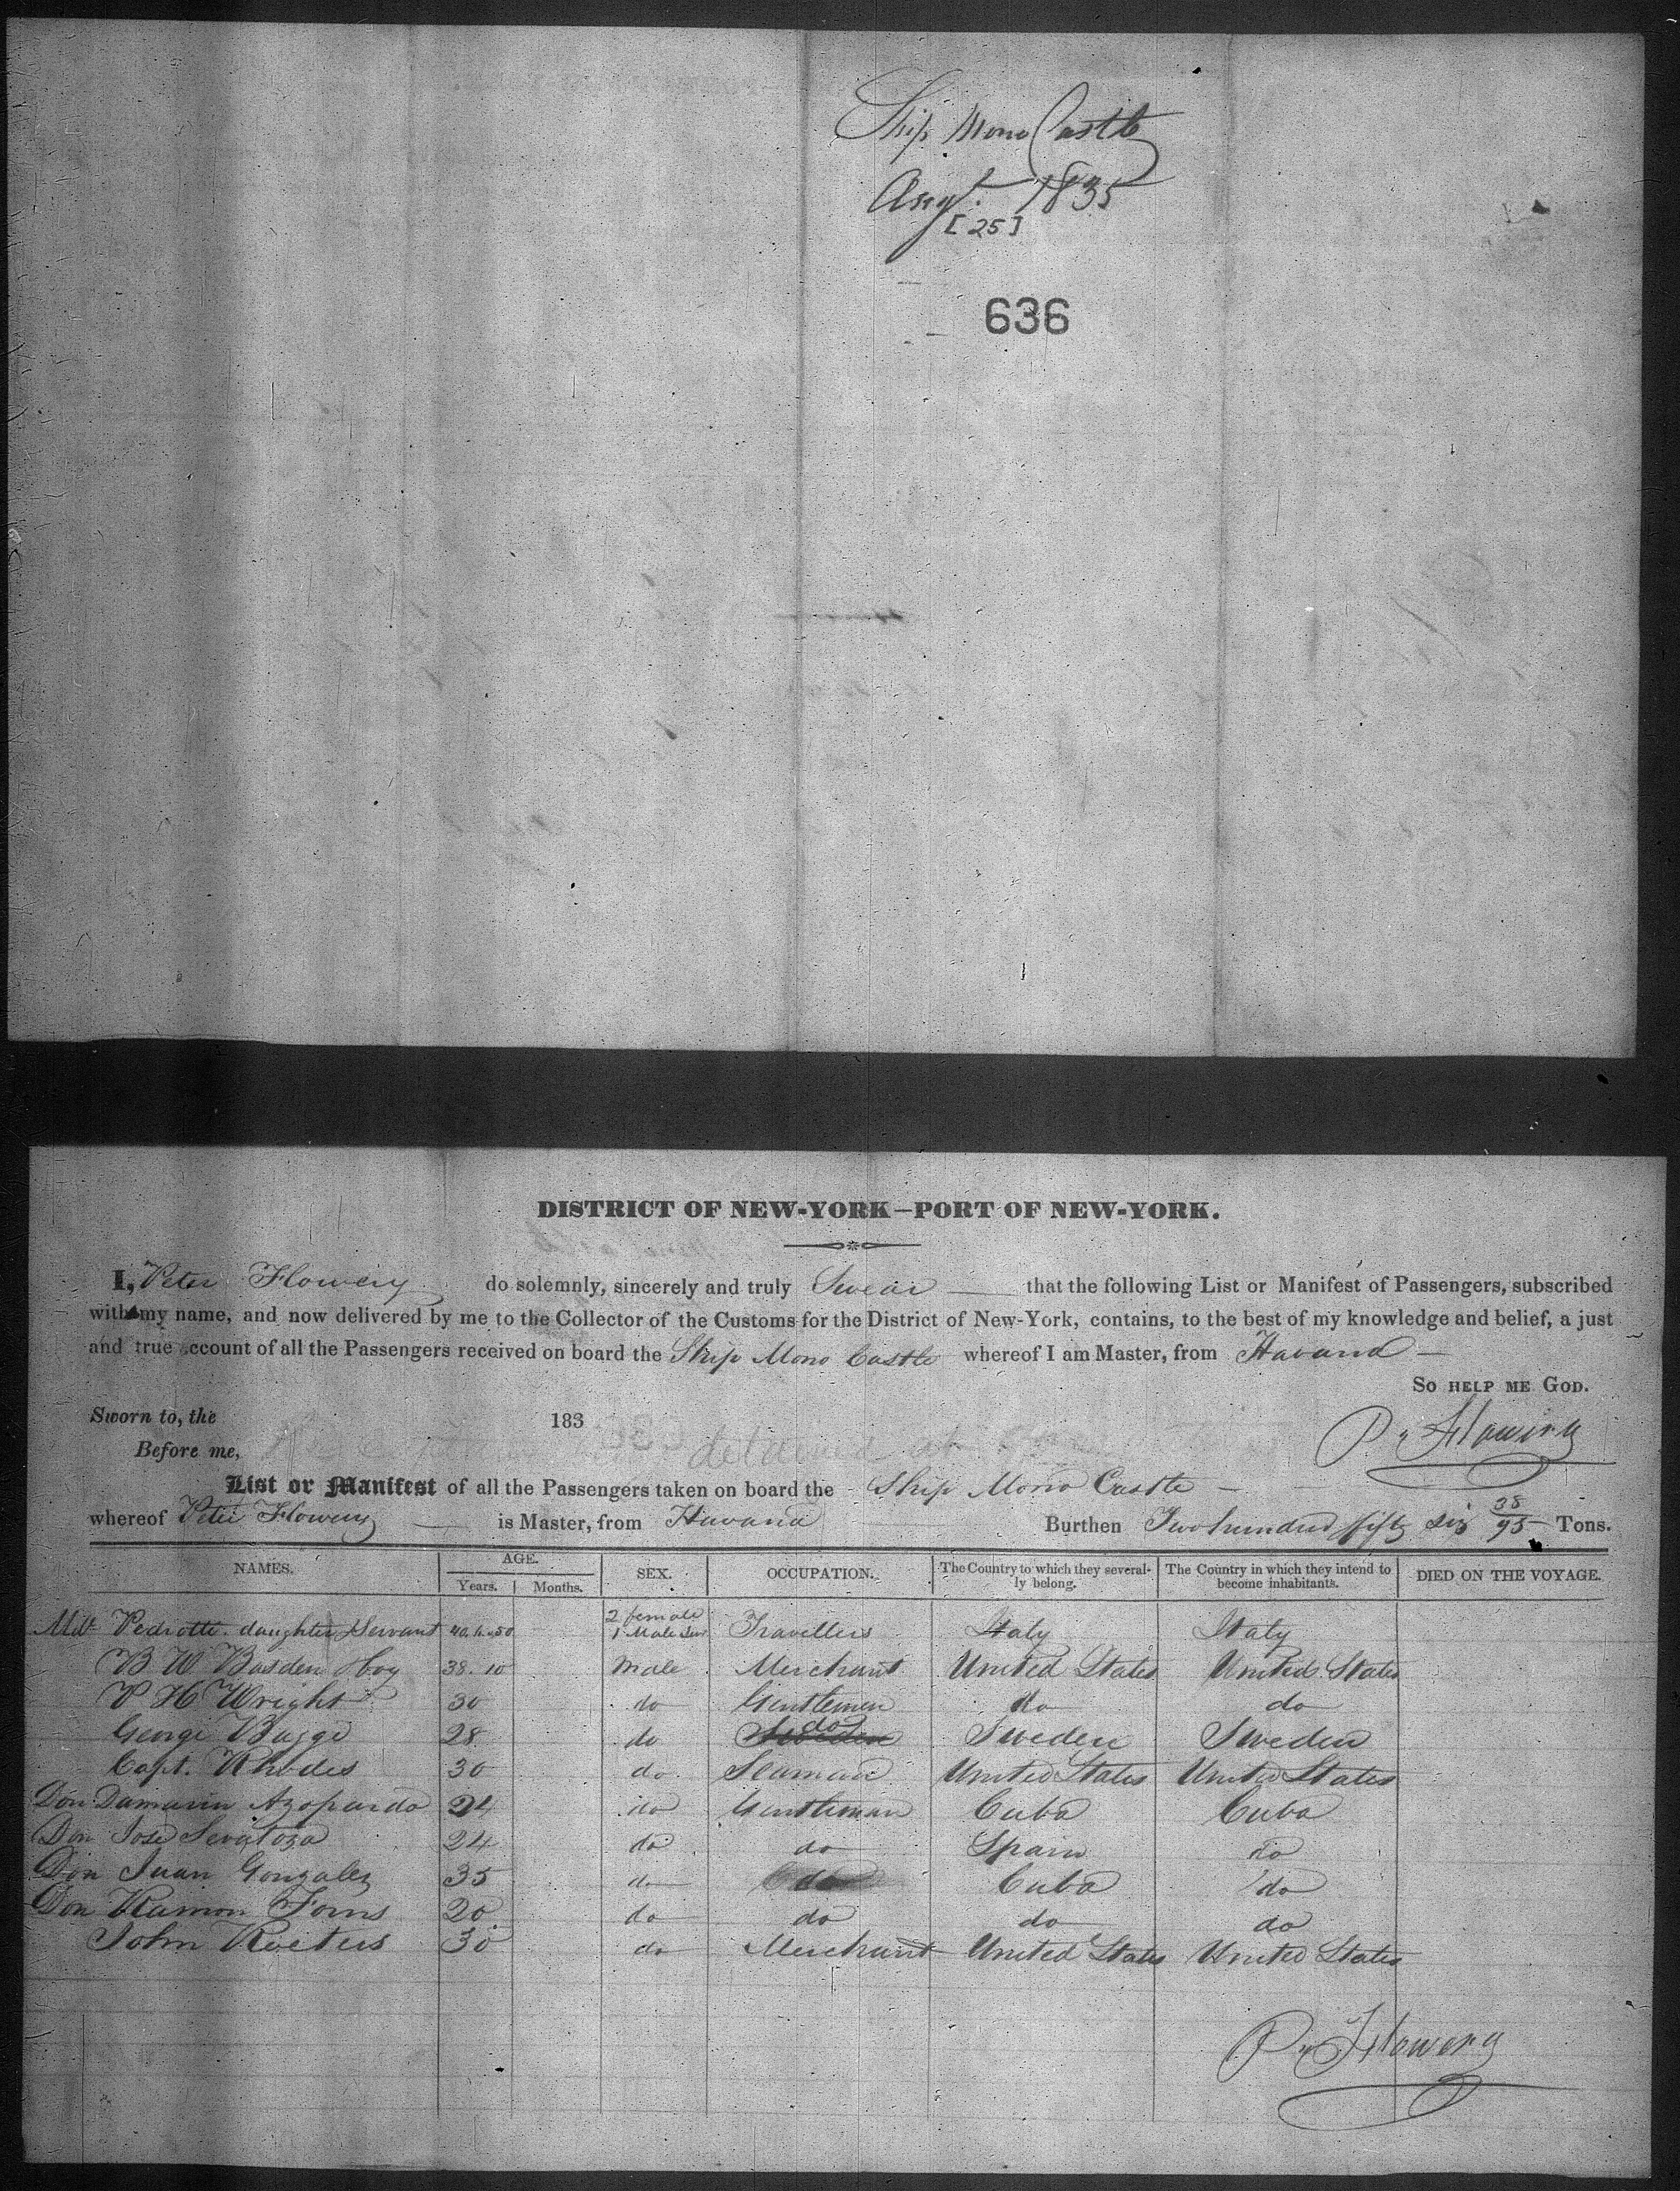 Ship Mono Castle
Augt. 1835
[25]
636
DISTRICT OF NEW-YORK—PORT OF NEW-YORK.
I, Peter Flowery do solemnly, sincerely and truly Swear that the following List or Manifest of Passengers, subscribed
with my name, and now delivered by me to the Collector of the Customs for the District of New-York, contains, to the best of my knowledge and belief, a just
and true account of all the Passengers received on board the Ship Mono Castle whereof I am Master, from Havana
SO HELP ME GOD.
Sworn to, the 183
P. Flowery
Before me,
List or Manifest of all the Passengers taken on board the Ship Mono Castle
whereof Peter Flowery is Master, from Havana Burthen Two hundred fifty six 38/95 Tons.
NAMES. AGE. Years. Months. SEX. OCCUPATION. The Country to which they severally belong. The Country in which they intend to become inhabitants. DIED ON THE VOYAGE.
Pedrotti daughter Servant 2 female 1 Male Travellers Italy Italy
B W Basden & boy 38. 10 Male Merchant United States United States
P H Wright 30 do Gentlemen do do
George Bugge 28 do do Sweden Sweden
Capt. Rhodes 30 do Seaman United States United States
Don Damarin Azopardo 24 do Gentleman Cuba Cuba
Don Jose 24 do do Spain do
Don Juan Gonzalez 35 do do Cuba do
Don Ramon Toms 20 do do do do
John Roeters 30 do Merchant United States United States
P. Flowery